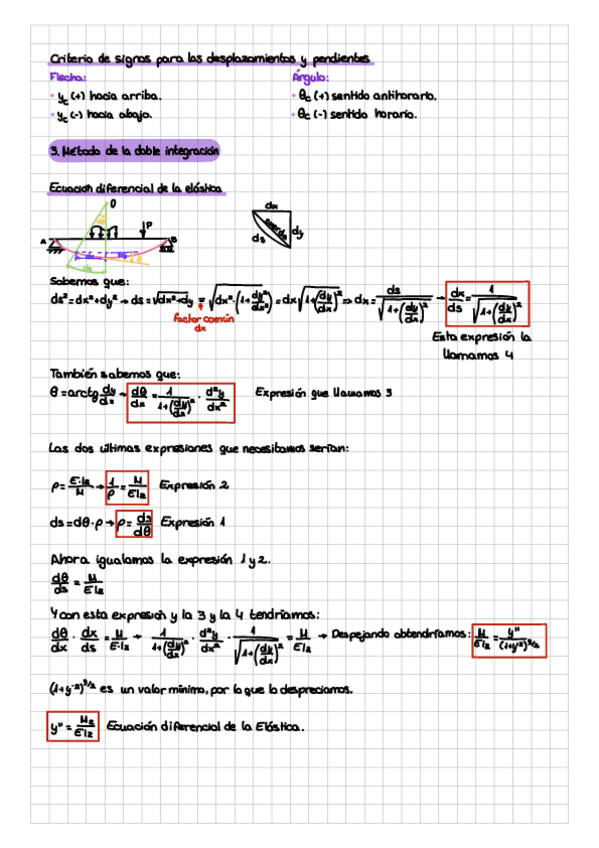 Criterio de signos para los desplazamientos y pendientes
Flecha:
Ángulo:
• yc (+) hacia arriba.
• θc (+) sentido antihorario.
• yc (-) hacia abajo.
• θc (-) sentido horario.
3. Método de la doble integración
Ecuación diferencial de la elástica
O
P
A
B
dx
cuerda
dy
ds
Sabemos que:
ds² = dx² + dy² → ds = √dx²+dy = √dx²·(1+dy²/dx²) = dx√1+(dy/dx)² ⇒ dx = ds/√1+(dy/dx)² → dx/ds = 1/√1+(dy/dx)²
factor común
dx
Esta expresión la
llamamos 4
También sabemos que:
θ = arctg dy/dx → dθ/dx = 1/1+(dy/dx)² · d²y/dx² Expresión que llamamos 3
Las dos últimas expresiones que necesitamos serían:
ρ = E·Iz/M → 1/ρ = M/EIz Expresión 2
ds = dθ·ρ → ρ = ds/dθ Expresión 1
Ahora igualamos la expresión 1 y 2.
dθ/ds = M/EIz
Y con esta expresión y la 3 y la 4 tendríamos:
dθ/dx · dx/ds = M/E·Iz → 1/1+(dy/dx)² · d²y/dx² · 1/√1+(dy/dx)² = M/EIz → Despejando obtendríamos: M/EIz = y''/(1+y'²)³/²
(1+y'²)³/² es un valor mínimo, por lo que lo despreciamos.
y'' = Mz/EIz Ecuación diferencial de la Elástica.